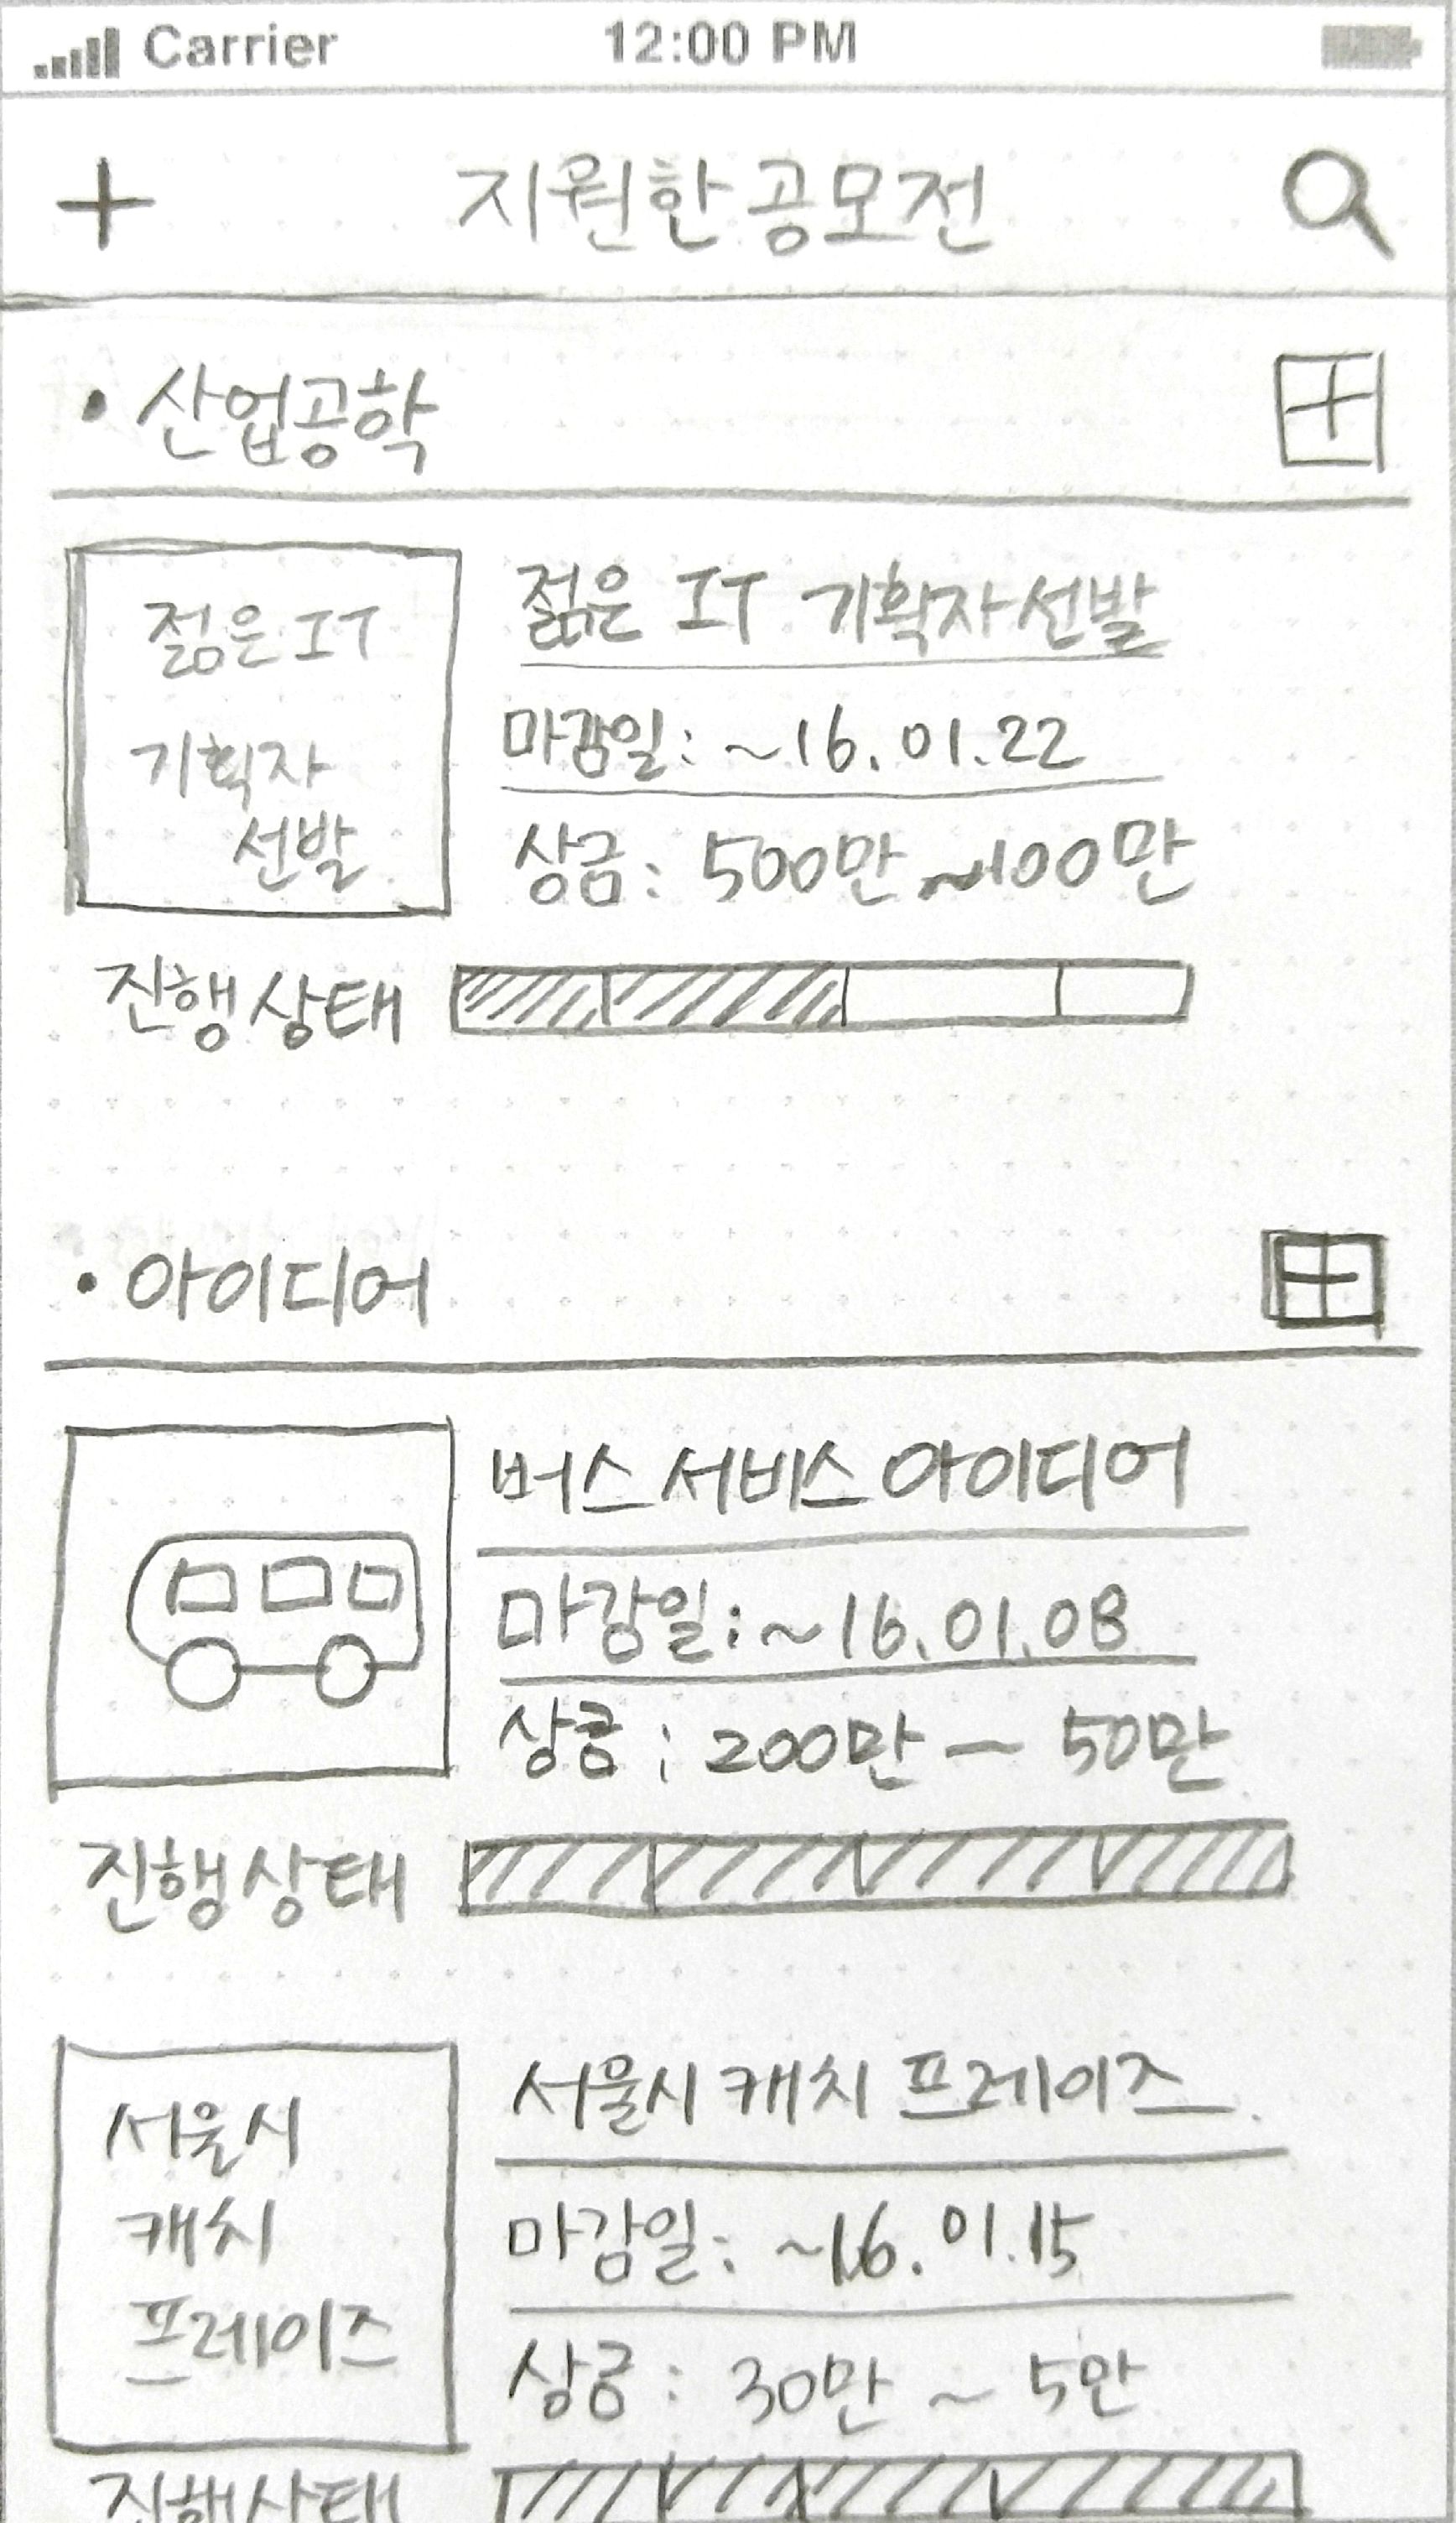 Carrier 12:00 PM
+ 지원한 공모전
• 산업공학
젊은 IT
기획자
선발
젊은 IT 기획자 선발
마감일: ~16.01.22
상금: 500만~100만
진행상태
• 아이디어
버스 서비스 아이디어
마감일: ~16.01.08
상금: 200만 - 50만
진행상태
서울시
캐치
프레이즈
서울시 캐치 프레이즈
마감일: ~16.01.15
상금: 30만 ~ 5만
진행상태